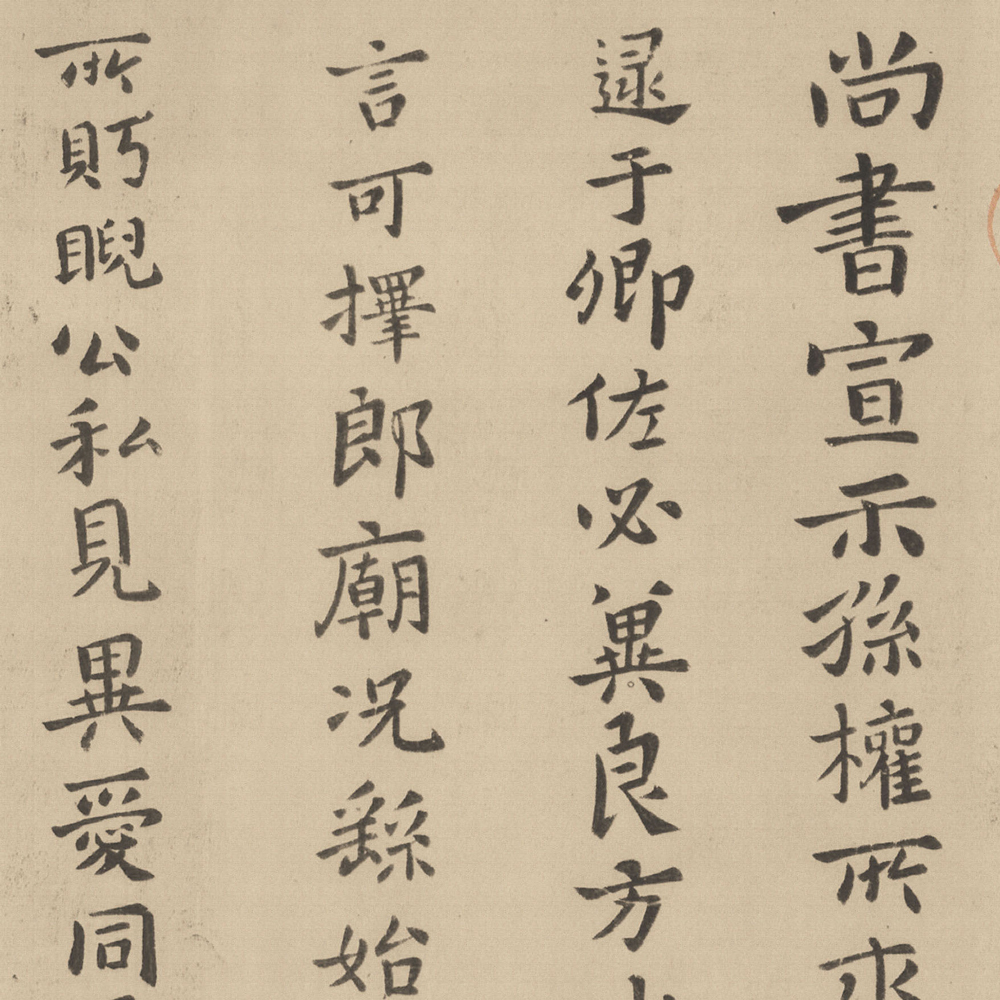 尚書宣示孫權所求
逮于卿佐必冀良方
言可擇郎廟況繇始
所眄睨公私見異愛同